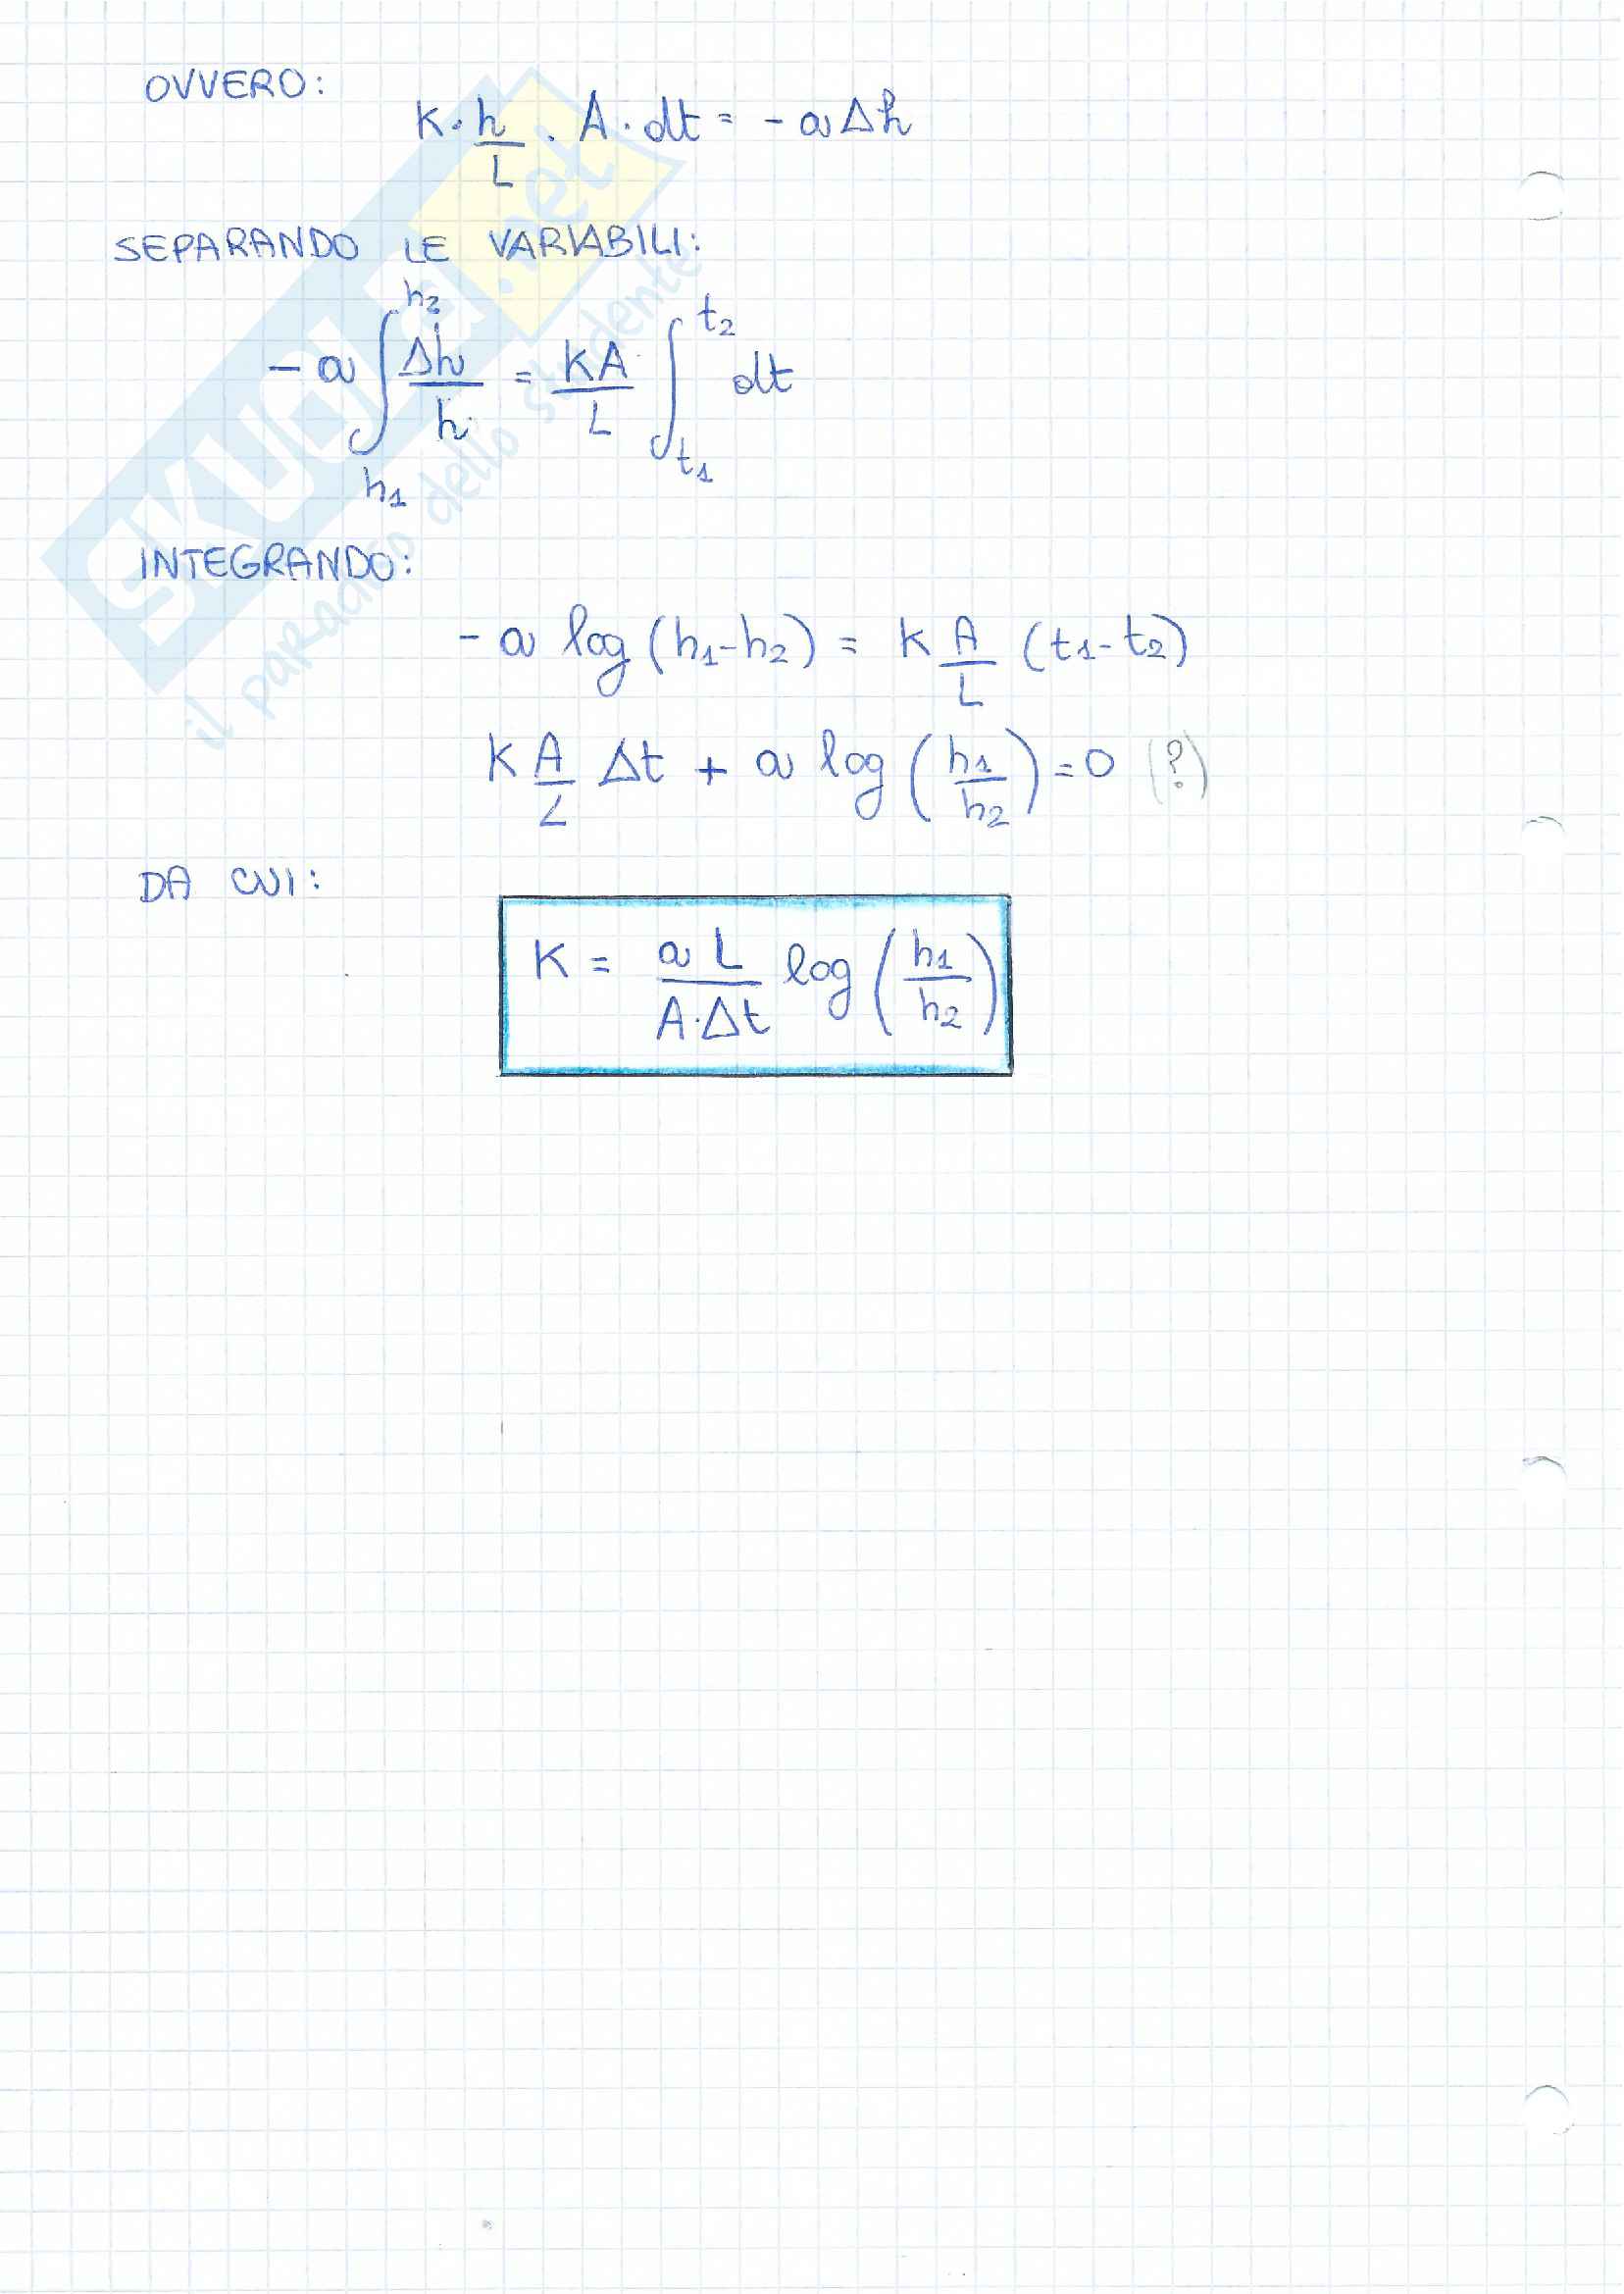 OVVERO:
K · h/L · A · dt = - a Δh
SEPARANDO LE VARIABILI:
- a ∫_{h1}^{h2} Δh/h = KA/L ∫_{t1}^{t2} dt
INTEGRANDO:
- a log (h1-h2) = K A/L (t1-t2)
K A/L Δt + a log (h1/h2) = 0 (?)
DA CUI:
K = a L / A·Δt log (h1/h2)
SKUOLA.net
il paradiso dello studente